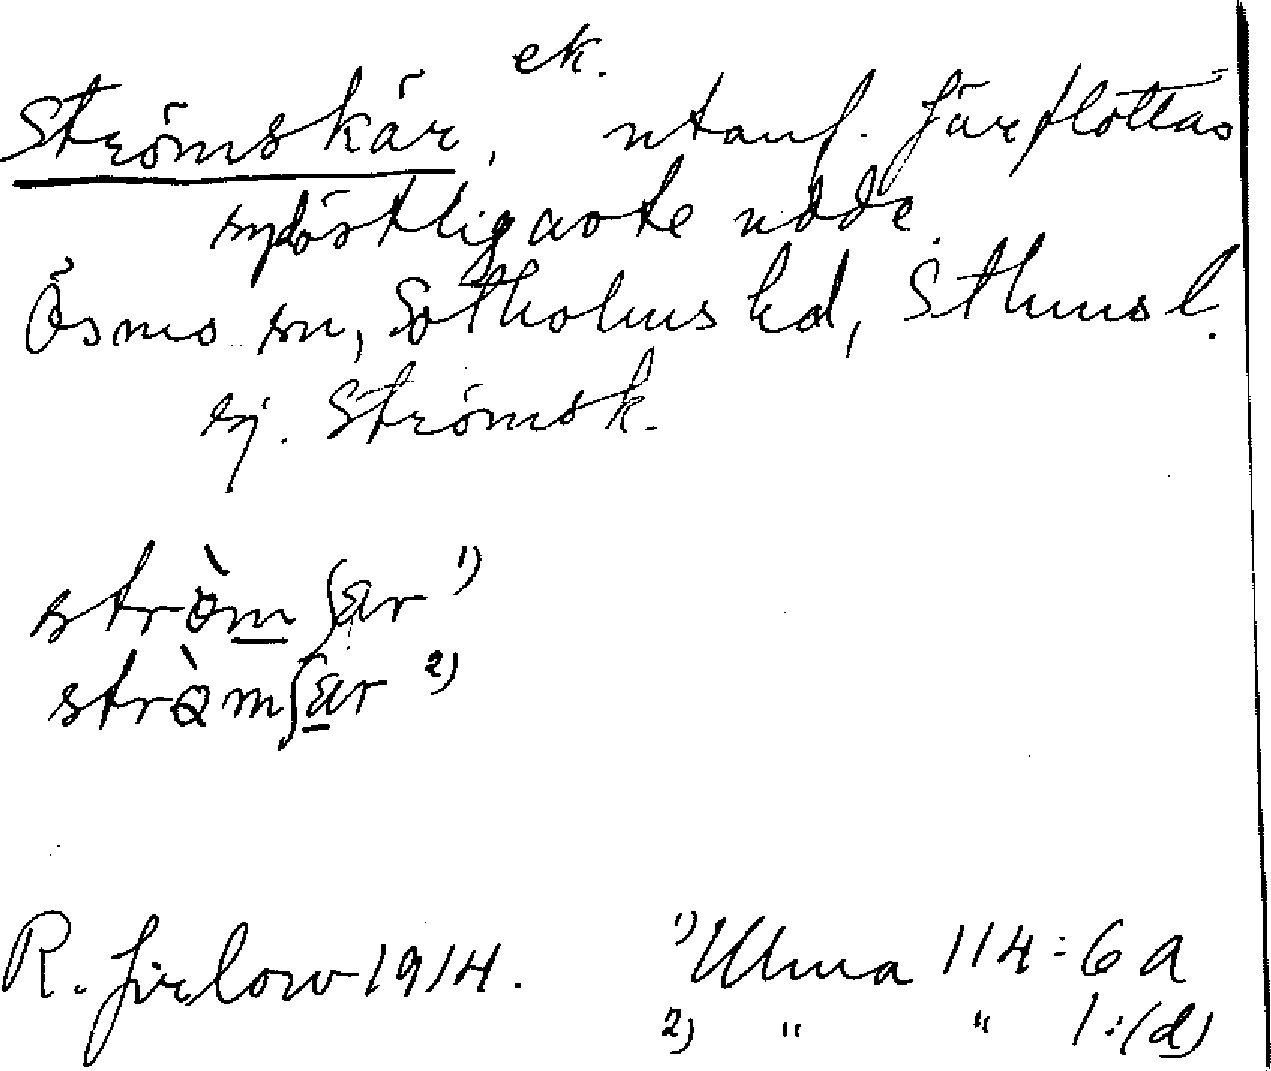 Strömskär, ek. utanf. Järflottas
sydöstligaste udde.
Ösmo sn, Sotholms hd, Sthms l.
sj. Strömsk.
strö̀mʃær 1)
strö̀mʃær 2)
R. Jirlow 1914. 1) Ulma 114:6 a
2) " " 1:(d)